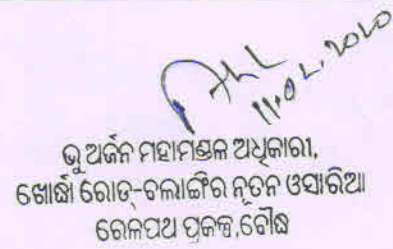 11.02.2020
ଭୂ ଅର୍ଜନ ମହାମଣ୍ଡଳ ଅଧିକାରୀ,
ଖୋର୍ଦ୍ଧା ରୋଡ୍-ବଲାଙ୍ଗିର ନୂତନ ଓସାରିଆ
ରେଳପଥ ପ୍ରକଳ୍ପ,ବୌଦ୍ଧ